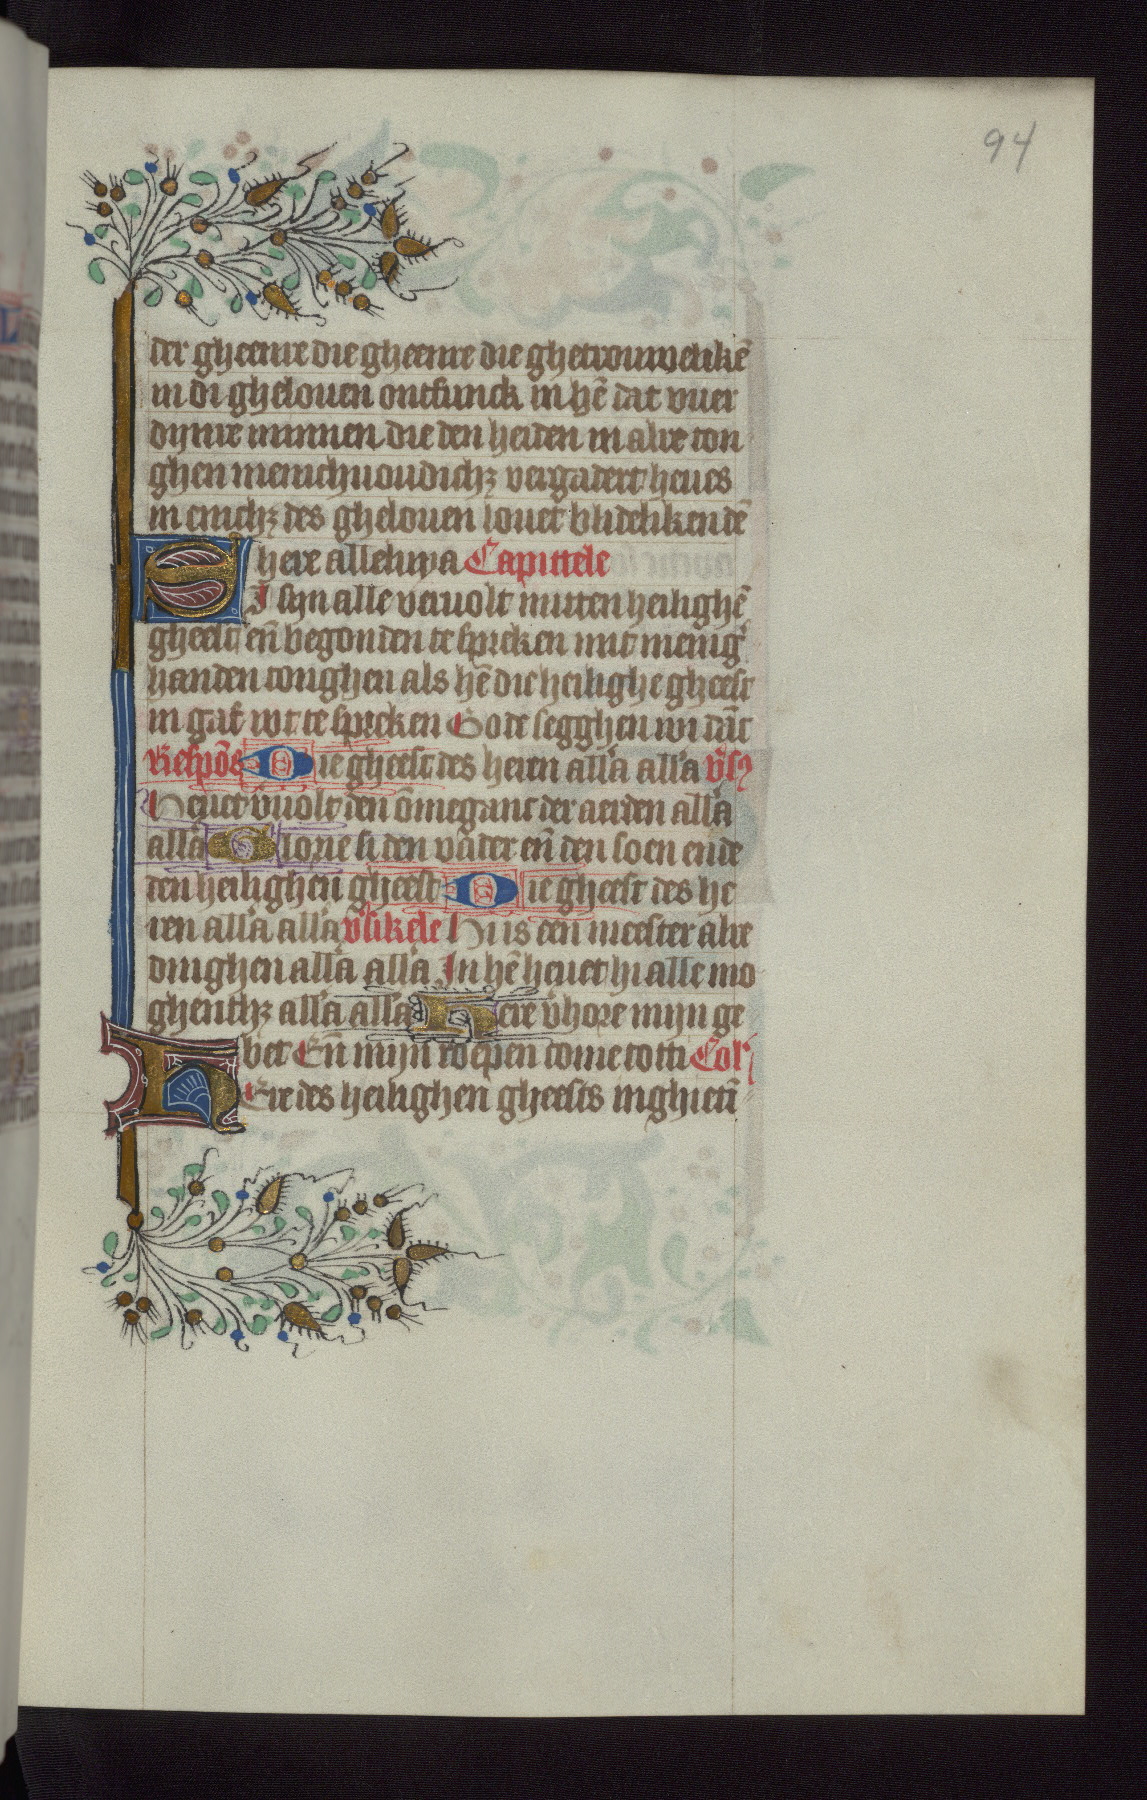 94
der gheenre die gheenre die ghetrouwelikē
in di ghelouen ontfunck in hē dat vuer
dijnre minnen die den heiden in alre ton
ghen menichuoudichꝫ vergadert heues
in enichꝫ des ghelouen louet blidelikendē
here alleluya Capittele
SI sijn alle veruolt mitten heilighē
gheest en̄ begonden te spreken mit menigʳ
handen tonghen als hē die heilighe gheest
in gaf wt te spreken Gode segghen wi dāc
Respōs Die gheest des heren all'a all'a v̓sꝫ
Heuet v̓uolt den ōmeganc der aerden all'a
all'a Glorie si den vader en̄ den soen ende
den heilighen gheest Die gheest des he
ren all'a all'a v̓sikele Hi is een meester alre
dinghen all'a all'a In hē heuet hi alle mo
ghenthꝫ all'a all'a Here v̓hore mijn ge
bet En̄ mijn roepen come totti Colʳ
HEre des heilighen gheests inghietī